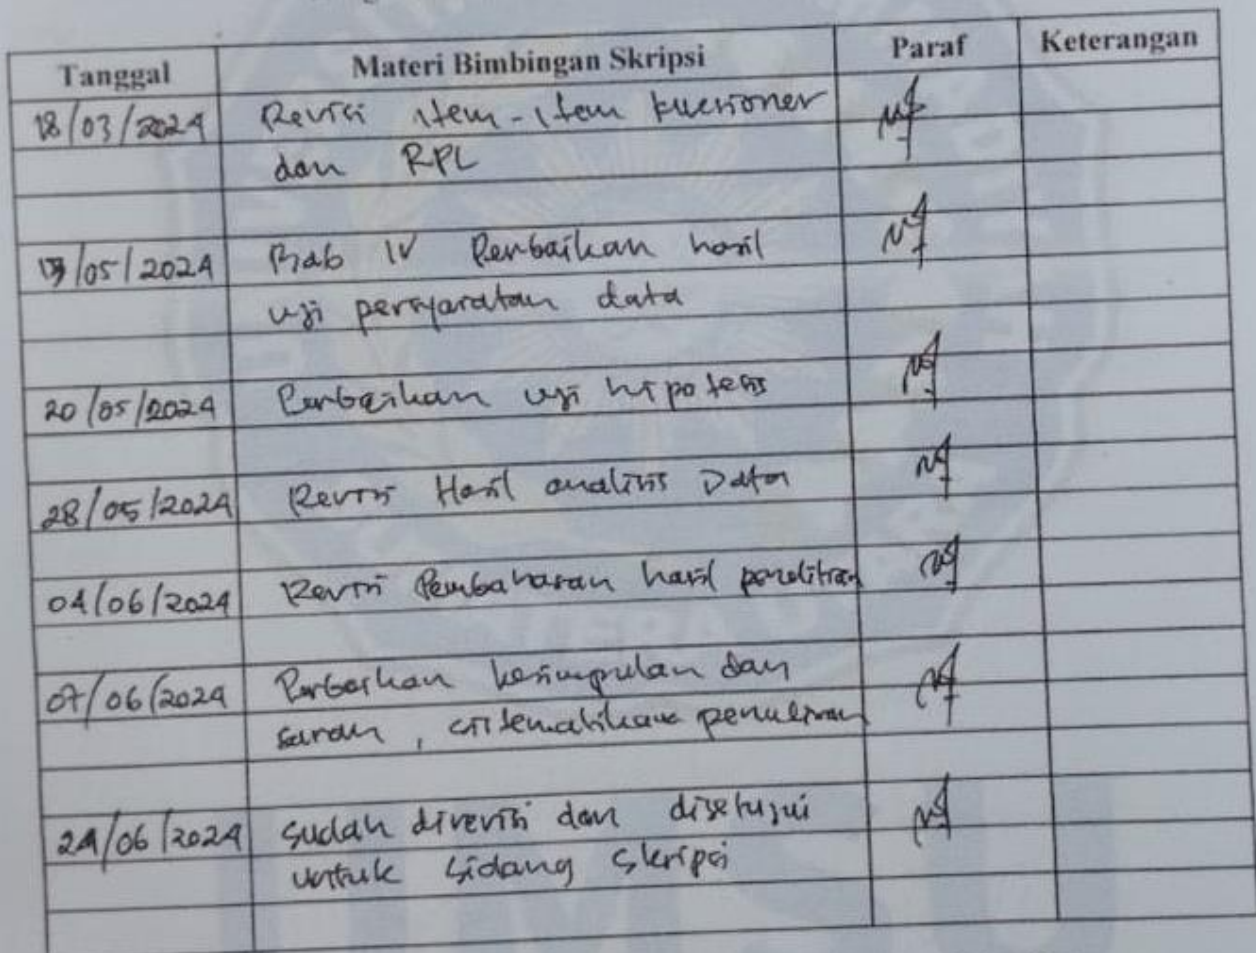 Tanggal Materi Bimbingan Skripsi Paraf Keterangan
18/03/2024 Revisi item-item kuesioner
dan RPL
/05/2024 Bab IV Perbaikan hasil
uji persyaratan data
20/05/2024 Perbaikan uji hipotesis
28/05/2024 Revisi Hasil analisis Data
04/06/2024 Revisi Pembahasan hasil penelitian
07/06/2024 Perbaikan kesimpulan dan
saran, sistematikan penulisan
24/06/2024 sudah direvisi dan disetujui
untuk sidang skripsi